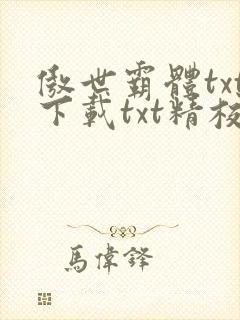 傲世霸體txt
下載txt精校
馬偉鋒